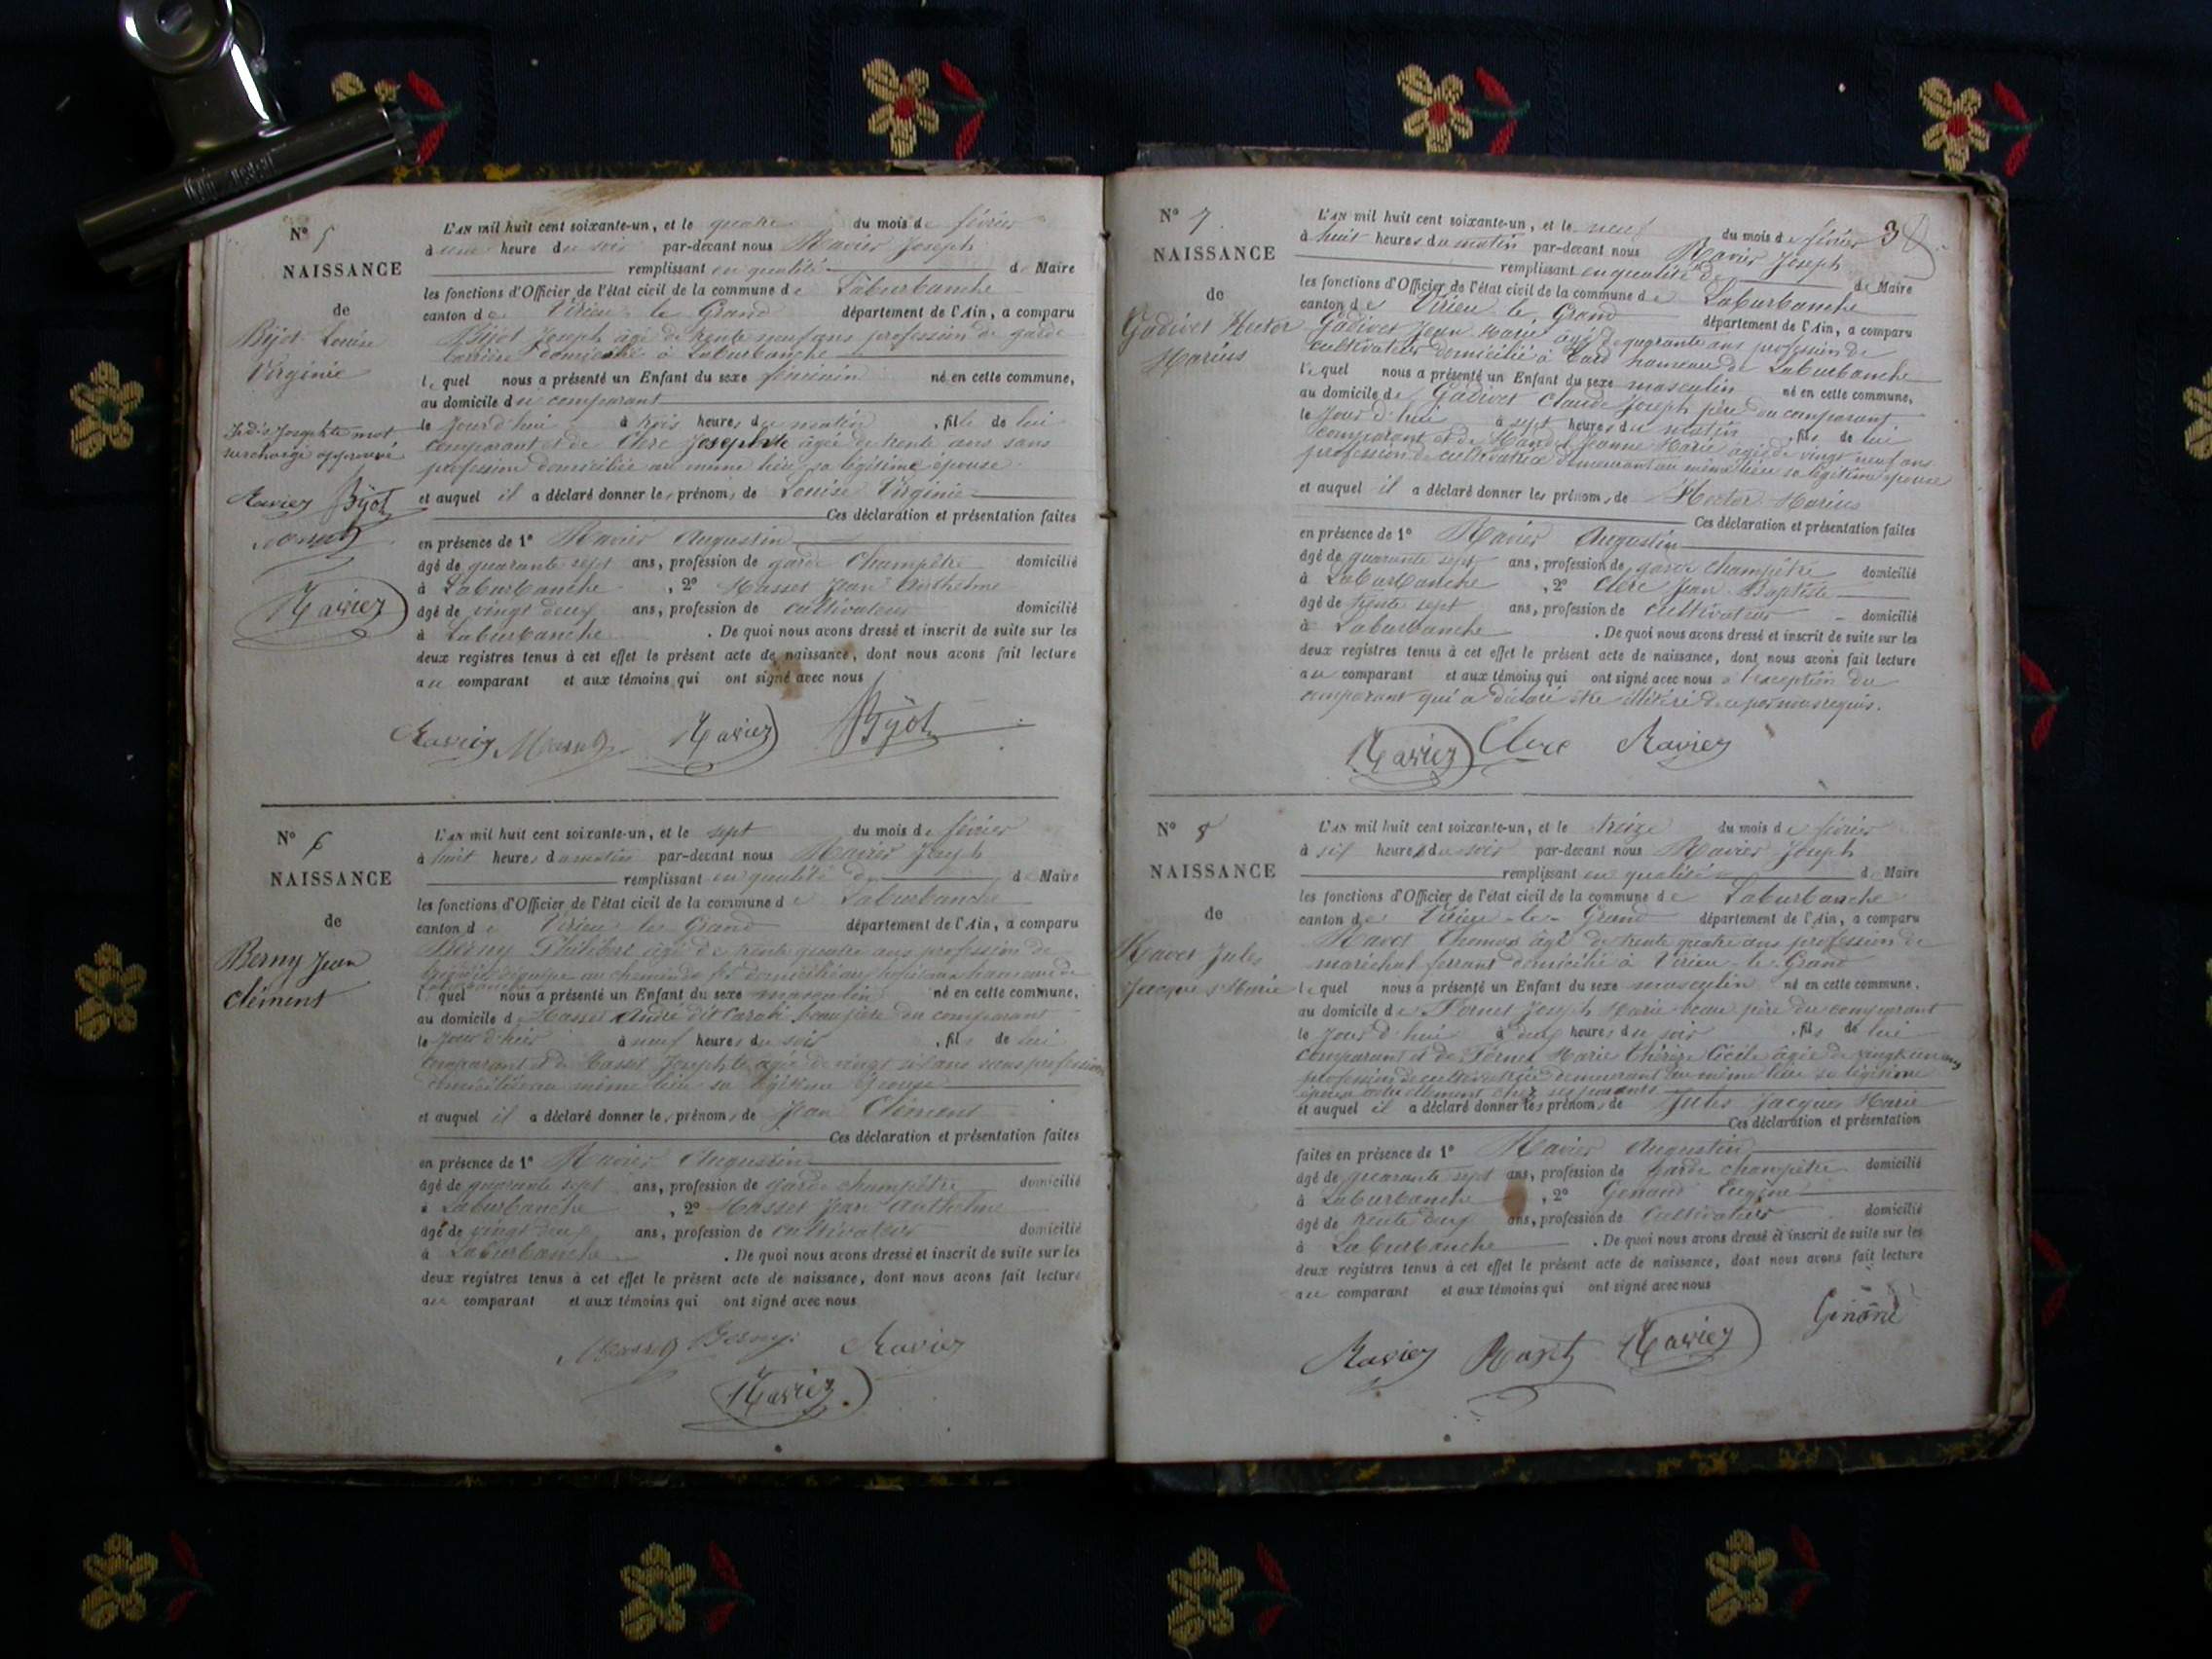 N° 5
NAISSANCE
de
Bijot Louise
Virginie
L'AN mil huit cent soixante-un, et le quatre du mois de février
à une heure du soir par-devant nous Ravier Joseph
remplissant en qualité de Maire
les fonctions d'Officier de l'état civil de la commune de Laburbanche
canton de Virieu le Grand département de l'Ain, a comparu
Bijot Joseph âgé de trente neuf ans profession de garde
barrière domicilié à Laburbanche
lequel nous a présenté un Enfant du sexe féminin né en cette commune,
au domicile du comparant
le jourd'hui à trois heures du matin , fille de lui
comparant et de Clerc Josephte âgée de trente ans sans
profession domiciliée au même lieu sa légitime épouse
et auquel il a déclaré donner les prénoms de Louise Virginie
Ces déclaration et présentation faites
en présence de 1° Ravier Augustin
âgé de quarante sept ans, profession de garde champêtre domicilié
à Laburbanche , 2° Masset Jean Anthelme
âgé de vingt deux ans, profession de cultivateur domicilié
à Laburbanche . De quoi nous avons dressé et inscrit de suite sur les
deux registres tenus à cet effet le présent acte de naissance, dont nous avons fait lecture
au comparant et aux témoins qui ont signé avec nous
Josephte mot
surchargé approuvé
Ravier Bijot
Masset
Ravier
Ravier Masset Ravier Bijot
N° 6
NAISSANCE
de
Berny Jean
Clément
L'AN mil huit cent soixante-un, et le sept du mois de février
à huit heures du matin par-devant nous Ravier Joseph
remplissant en qualité de de Maire
les fonctions d'Officier de l'état civil de la commune de Laburbanche
canton de Virieu le Grand département de l'Ain, a comparu
Berny Philibert âgé de trente quatre ans profession de
au chemin de fer domicilié hameau de
Laburbanche
lequel nous a présenté un Enfant du sexe masculin né en cette commune,
au domicile de Masset André dit Carabi beau père du comparant
le jour d'hier à neuf heures du soir , fils de lui
comparant et de Masset Josephte âgée de vingt six ans sans profession
domiciliée au même lieu sa légitime épouse
et auquel il a déclaré donner les prénoms de Jean Clément
Ces déclaration et présentation faites
en présence de 1° Ravier Augustin
âgé de quarante sept ans, profession de garde champêtre domicilié
à Laburbanche , 2° Masset Jean Anthelme
âgé de vingt deux ans, profession de cultivateur domicilié
à Laburbanche . De quoi nous avons dressé et inscrit de suite sur les
deux registres tenus à cet effet le présent acte de naissance, dont nous avons fait lecture
au comparant et aux témoins qui ont signé avec nous
Masset Berny Ravier
Ravier
3
N° 7
NAISSANCE
de
Gadivet Hector
Marius
L'AN mil huit cent soixante-un, et le neuf du mois de février
à huit heures du matin par-devant nous Ravier Joseph
remplissant en qualité de de Maire
les fonctions d'Officier de l'état civil de la commune de Laburbanche
canton de Virieu le Grand département de l'Ain, a comparu
Gadivet Jean Marie âgé de quarante ans profession de
cultivateur domicilié à hameau de Laburbanche
lequel nous a présenté un Enfant du sexe masculin né en cette commune,
au domicile de Gadivet Claude Joseph père du comparant
le jour d'hui à sept heures du matin , fils de lui
comparant et de Jeanne Marie âgée de vingt neuf ans
profession de cultivatrice demeurant au même lieu sa légitime épouse
et auquel il a déclaré donner les prénoms de Hector Marius
Ces déclaration et présentation faites
en présence de 1° Ravier Augustin
âgé de quarante sept ans, profession de garde champêtre domicilié
à Laburbanche , 2° Clerc Jean Baptiste
âgé de trente sept ans, profession de cultivateur domicilié
à Laburbanche . De quoi nous avons dressé et inscrit de suite sur les
deux registres tenus à cet effet le présent acte de naissance, dont nous avons fait lecture
au comparant et aux témoins qui ont signé avec nous à l'exception du
comparant qui a déclaré être illitéré de ce par nous requis.
Ravier Clerc Ravier
N° 8
NAISSANCE
de
Ravet Jules
Jacques Marie
L'AN mil huit cent soixante-un, et le treize du mois de février
à six heures du soir par-devant nous Ravier Joseph
remplissant en qualité de Maire
les fonctions d'Officier de l'état civil de la commune de Laburbanche
canton de Virieu-le-Grand département de l'Ain, a comparu
Ravet Thomas âgé de trente quatre ans profession de
maréchal ferrant domicilié à Virieu-le-Grand
lequel nous a présenté un Enfant du sexe masculin né en cette commune,
au domicile de Fornet Joseph Marie beau père du comparant
le jour d'hui à deux heures du soir , fils de lui
comparant et de Fornet Marie Thérèse Cécile âgée de vingt un ans
profession de cultivatrice demeurant au même lieu sa légitime
épouse actuellement chez ses parents
et auquel il a déclaré donner les prénoms de Jules Jacques Marie
Ces déclaration et présentation
faites en présence de 1° Ravier Augustin
âgé de quarante sept ans, profession de garde champêtre domicilié
à Laburbanche , 2° Genand Eugène
âgé de trente deux ans, profession de cultivateur domicilié
à Laburbanche . De quoi nous avons dressé et inscrit de suite sur les
deux registres tenus à cet effet le présent acte de naissance, dont nous avons fait lecture
au comparant et aux témoins qui ont signé avec nous
Ravier Ravet Ravier Genand